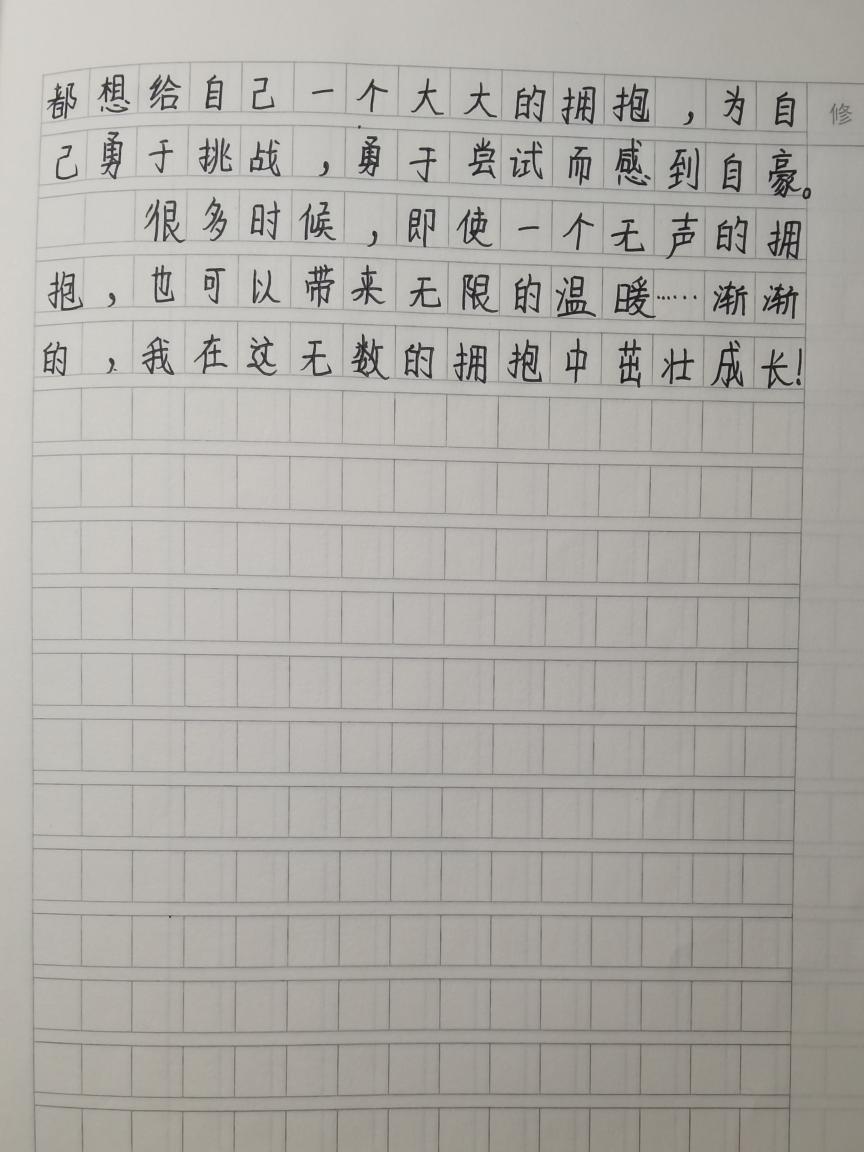 都想给自己一个大大的拥抱，为自
己勇于挑战，勇于尝试而感到自豪。
很多时候，即使一个无声的拥
抱，也可以带来无限的温暖……渐渐
的，我在这无数的拥抱中茁壮成长！
修